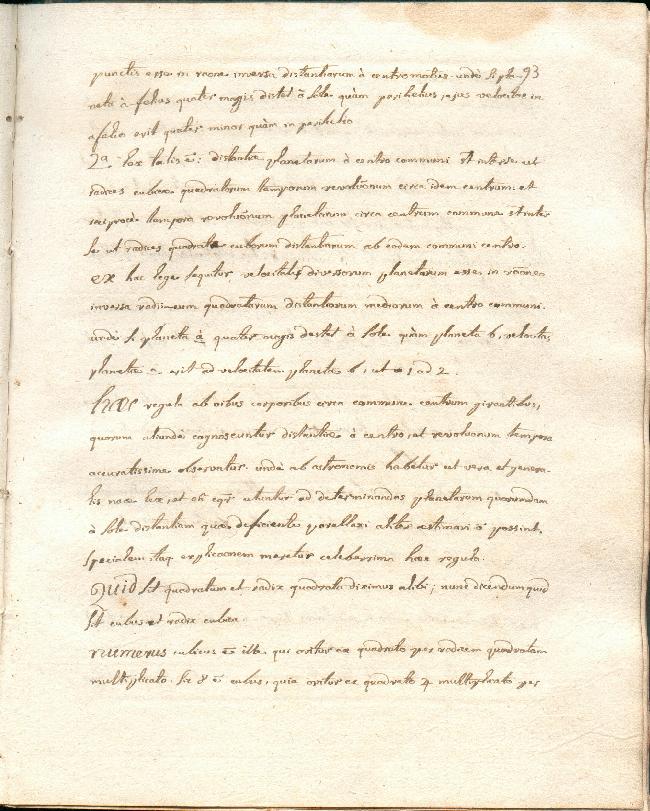 punctis esse in raõne inversa distantiarum à centro motus. unde si pla- 93
neta à felius quater magis distet à sole quàm perihelius, ejus velocitas in
afelio erit quater minor quàm in perihelio
2a. lex talis ē: distantiæ planetarum à centro communi st inter se ut
radices cubicæ quadratorum temporum revoluõnum circa idem centrum: et
reciproce tempora revoluõnum planetarum circa centrum commune st inter
se ut radices quadratæ cuborum distantiarum ab eodem communi centro.
ex hac lege sequitur, velocitates diversorum planetarum esse in raõne
inversa radicum quadratarum distantiarum mediarum à centro communi.
unde si planeta a quater magis distet à sole quàm planeta b, velocitas
planetæ a erit ad velocitatem planetæ b, ut 1 ad 2.
Hæc regula ab oibus corporibus circa commune centrum girantibus,
quorum aliunde cognoscuntur distantiæ à centro, et revoluõnum tempora
accuratissime observatur. unde ab astronomis habetur ut vera et genera-
lis naæ lex, et utuntur ad determinandas planetarum quorundam
à sole distantiam quæ deficiente parallaxi aliter æstimari possint.
specialem itaq explicaõnem meretur celeberrima hæc regula.
Quid sit quadratum et radix quadrata diximus alibi; nunc dicendum quid
sit cubus et radix cubica
Numerus cubicus ē ille, qui oritur ex quadrato per radicem quadratam
multiplicato. sic 8 ē cubus, quia oritur ex quadrato 4 multiplicato per